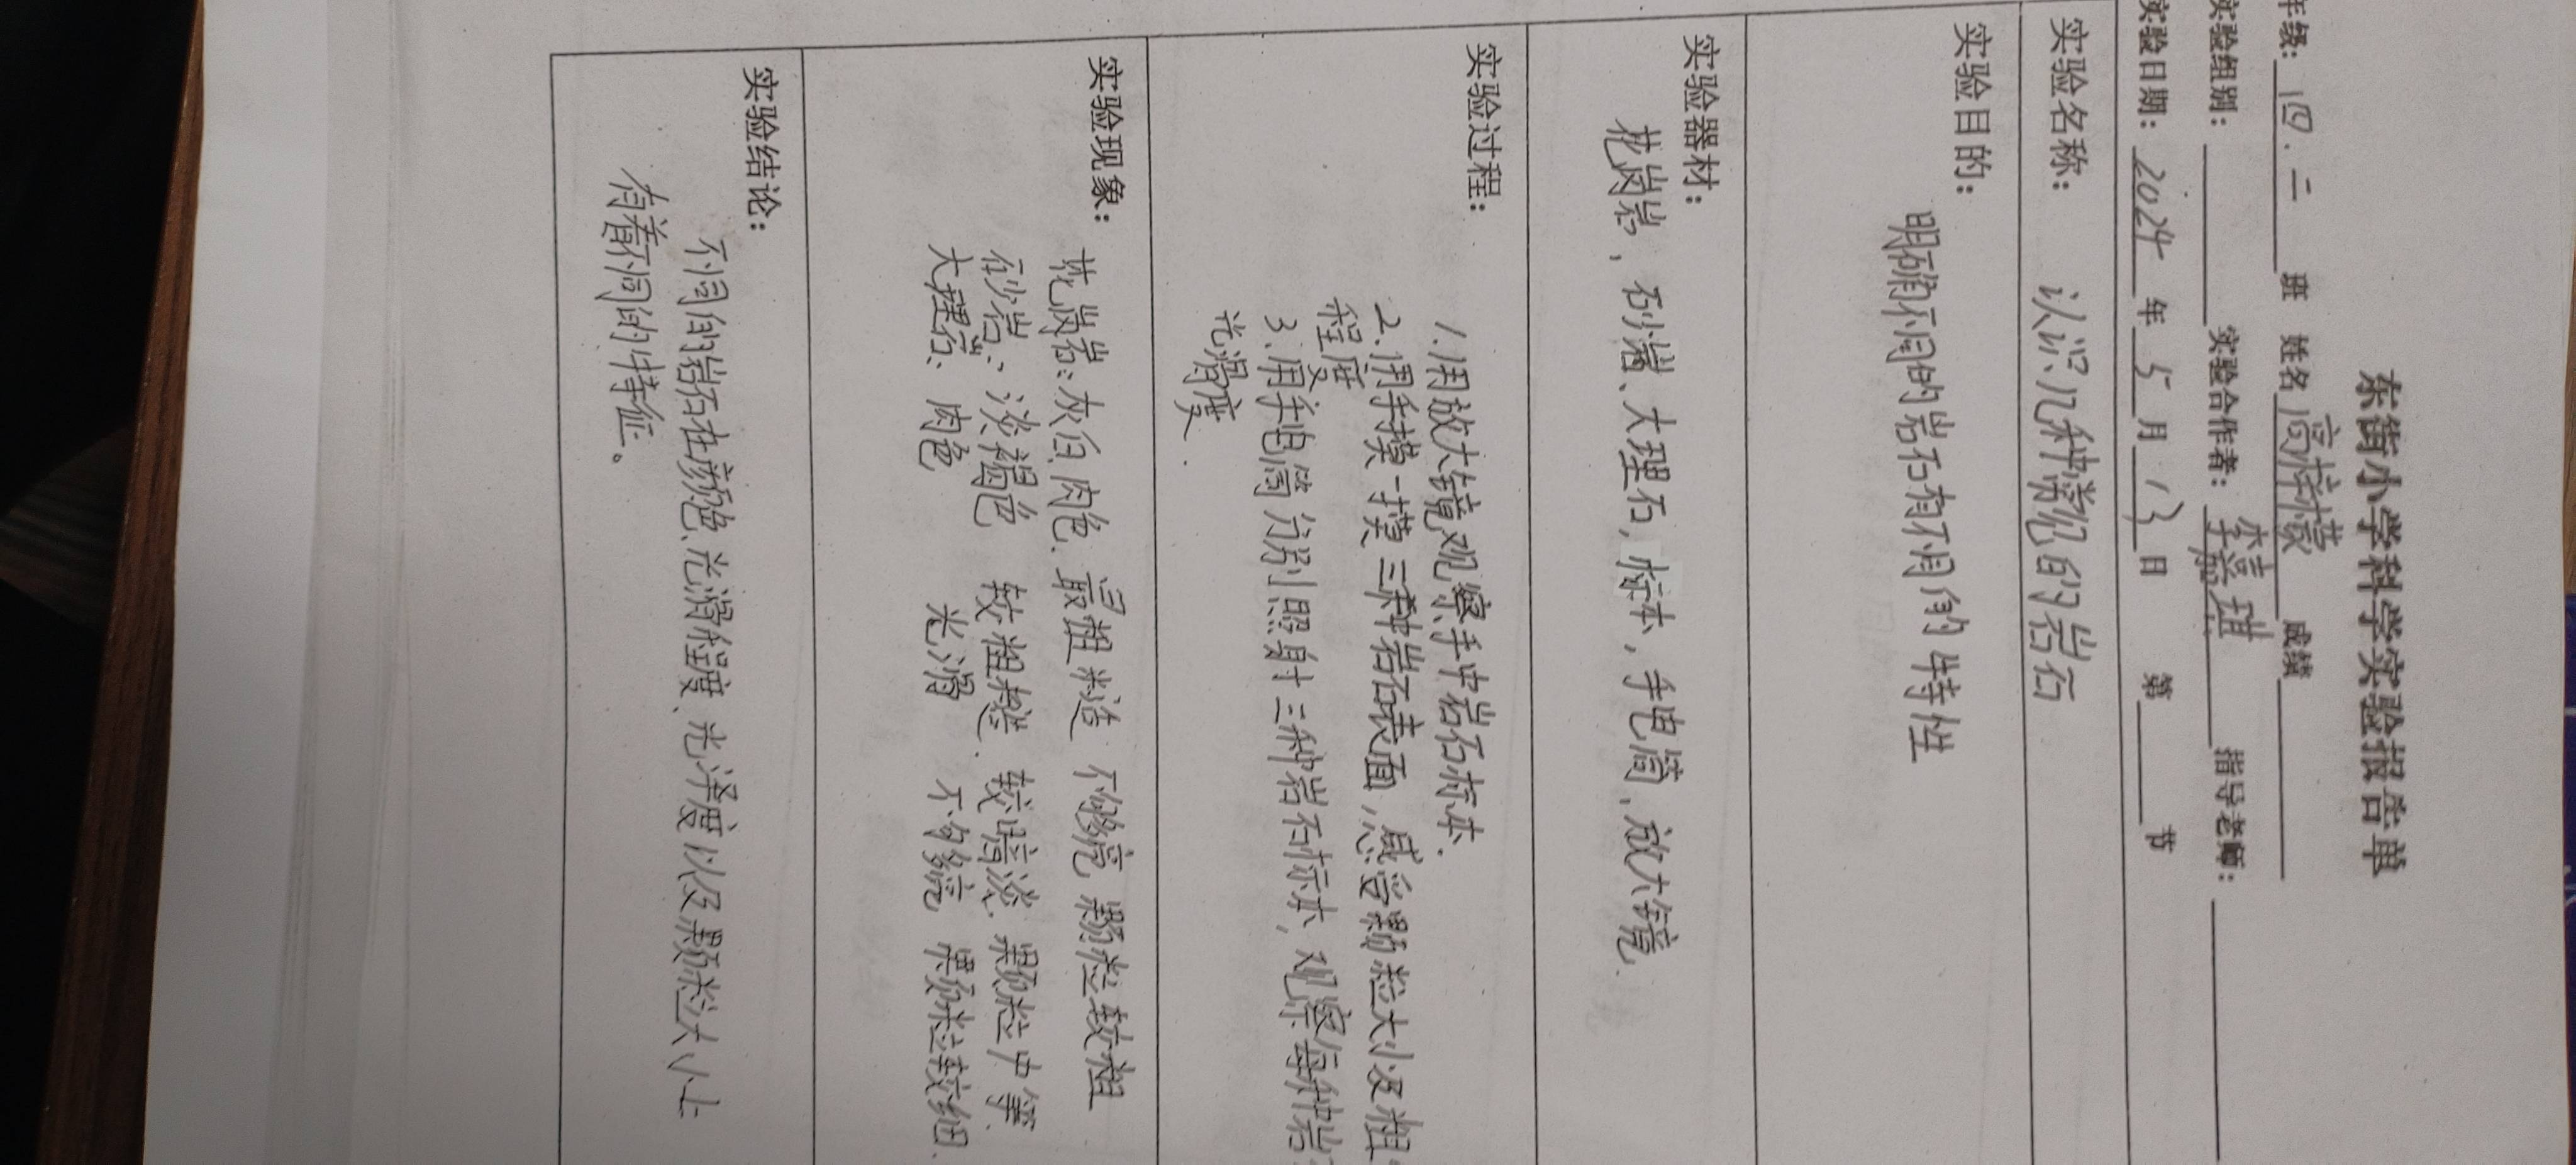 东街小学科学实验报告单
年级：四.二 班 姓名 高梓檬 成绩
实验组别： 实验合作者：李嘉琪 指导老师：
实验日期：2024 年 5 月 13 日 第 节
实验名称： 认识几种常见的岩石
实验目的：
明确不同的岩石有不同的特性
实验器材：
花岗岩，砂岩、大理石，标本，手电筒、放大镜.
实验过程：
1.用放大镜观察手中岩石标本.
2.用手摸一摸三种岩石表面，感受颗粒大小及粗
程度
3.用手电筒分别照射三种岩石标本，观察每种岩
光滑度.
实验现象：
花岗岩：灰白、肉色、最粗糙 不够亮 颗粒较粗
砂岩：淡褐色 较粗糙、较暗淡、颗粒中等.
大理石：肉色 光滑 不够亮 颗粒较细.
实验结论：
不同的岩石在颜色、光滑程度、光泽度以及颗粒大小上
有着不同的特征。